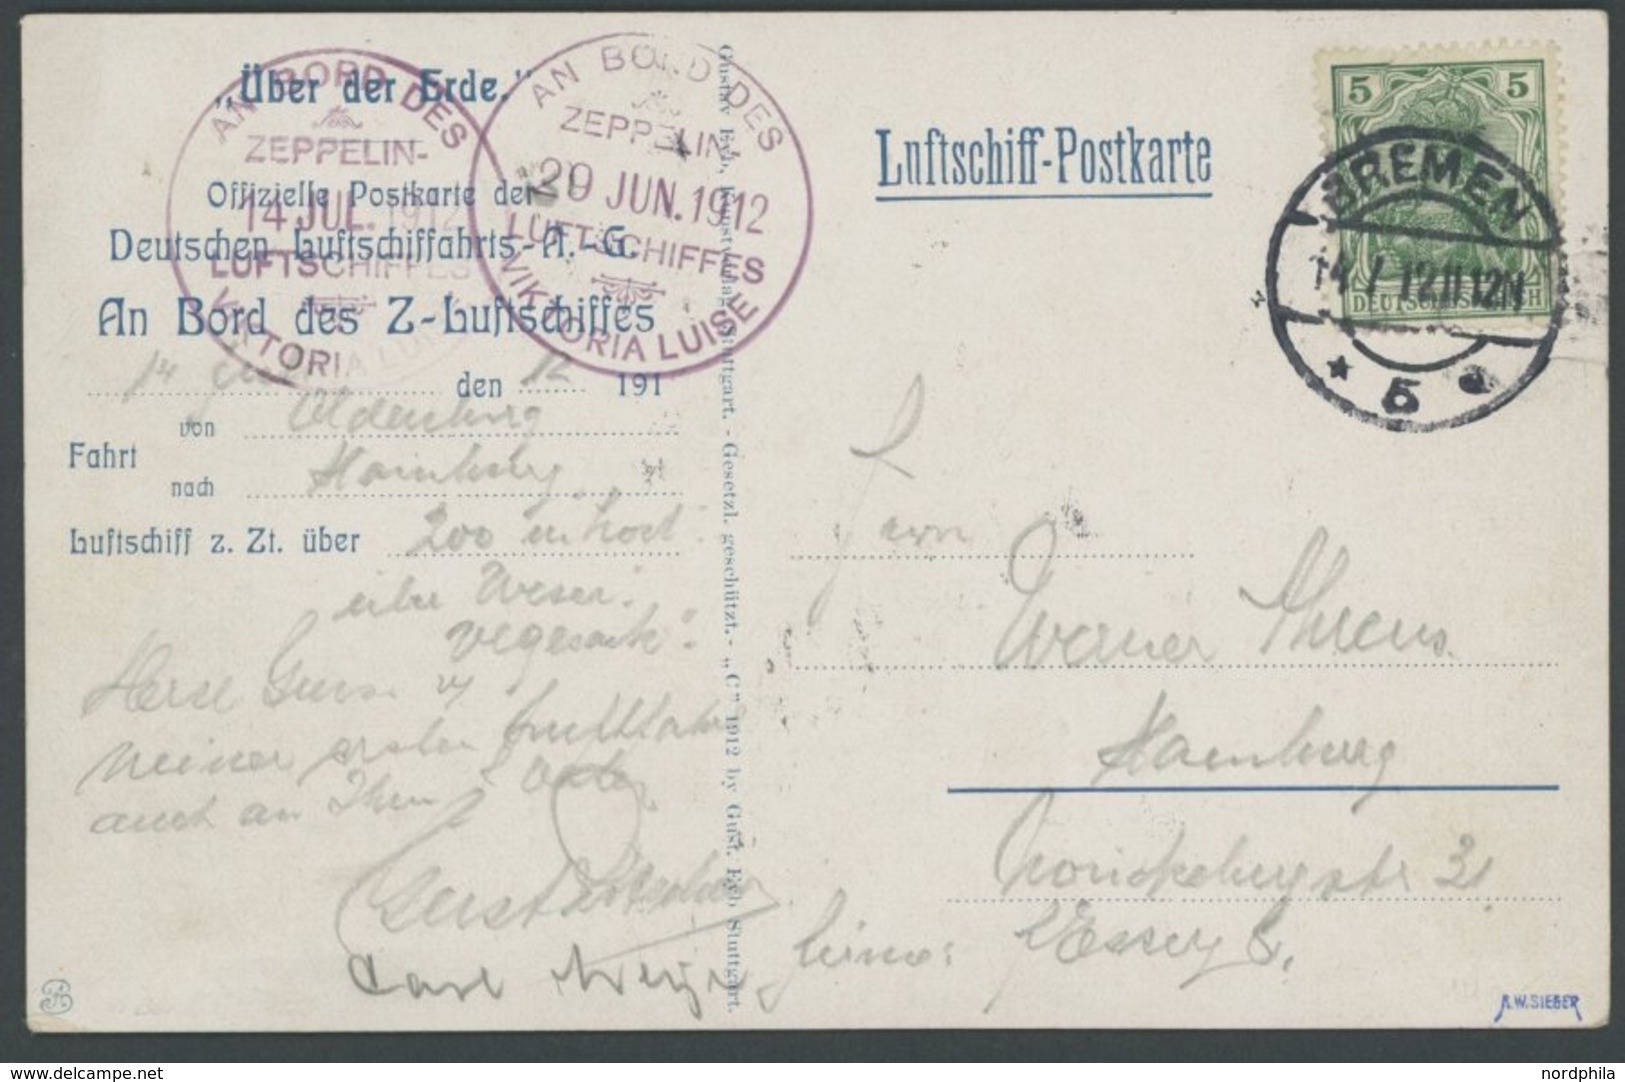 „Über der Erde.“
AN BORD DES
ZEPPELIN-
14 JUL. 1912
LUFTSCHIFFES
VIKTORIA LUISE
AN BORD DES
ZEPPELIN
29 JUN. 1912
LUFTSCHIFFES
VIKTORIA LUISE
Offizielle Postkarte der
Deutschen Luftschiffahrts-A.-G.
An Bord des Z-Luftschiffes
14 den 12 191
Fahrt
von Oldenburg
nach Hamburg
Luftschiff z. Zt. über 200 m hoch
über Weser
Vegesack
meiner ersten
auch an Ihnen
Carl
Gustav Eyb, Kunstverlag, Stuttgart. - Gesetzl. geschützt. - „C“ 1912 by Gust. Eyb Stuttgart.
Luftschiff-Postkarte
5 5
DEUTSCHES REICH
BREMEN
14.7.12 11 12N
* 5 a
Herrn
Werner Ahrens
Hamburg
31
A.W. SIEGER
delcampe.net
nordphila